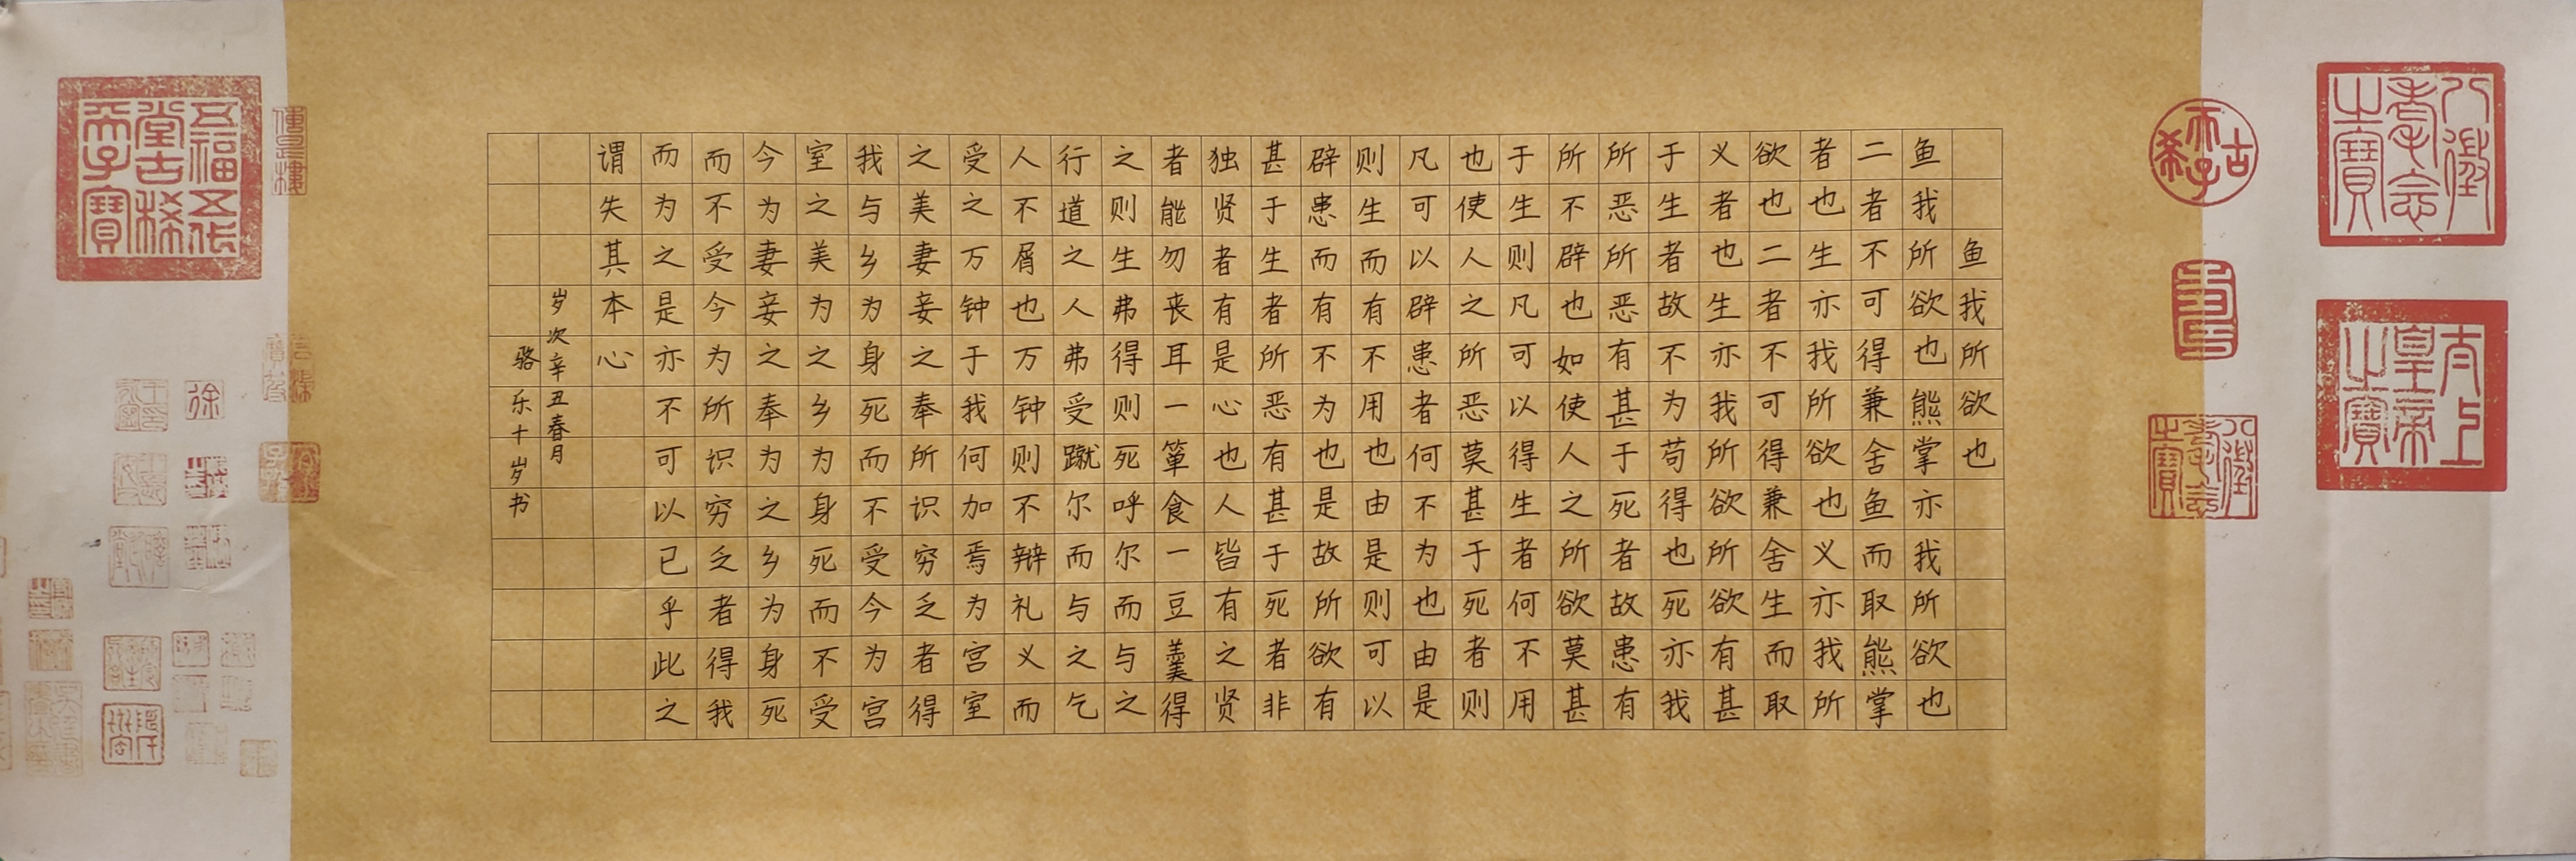 八徵耄念之寶
太上皇帝之寶
古希天子
八徵耄念之寶
鱼我所欲也
鱼我所欲也熊掌亦我所欲也
二者不可得兼舍鱼而取熊掌
者也生亦我所欲也义亦我所
欲也二者不可得兼舍生而取
义者也生亦我所欲所欲有甚
于生者故不为苟得也死亦我
所恶所恶有甚于死者故患有
所不辟也如使人之所欲莫甚
于生则凡可以得生者何不用
也使人之所恶莫甚于死者则
凡可以辟患者何不为也由是
则生而有不用也由是则可以
辟患而有不为也是故所欲有
甚于生者所恶有甚于死者非
独贤者有是心也人皆有之贤
者能勿丧耳一箪食一豆羹得
之则生弗得则死呼尔而与之
行道之人弗受蹴尔而与之乞
人不屑也万钟则不辩礼义而
受之万钟于我何加焉为宫室
之美妻妾之奉所识穷乏者得
我与乡为身死而不受今为宫
室之美为之乡为身死而不受
今为妻妾之奉为之乡为身死
而不受今为所识穷乏者得我
而为之是亦不可以已乎此之
谓失其本心
岁次辛丑春月
骆乐十岁书
五福五代堂古稀天子寶